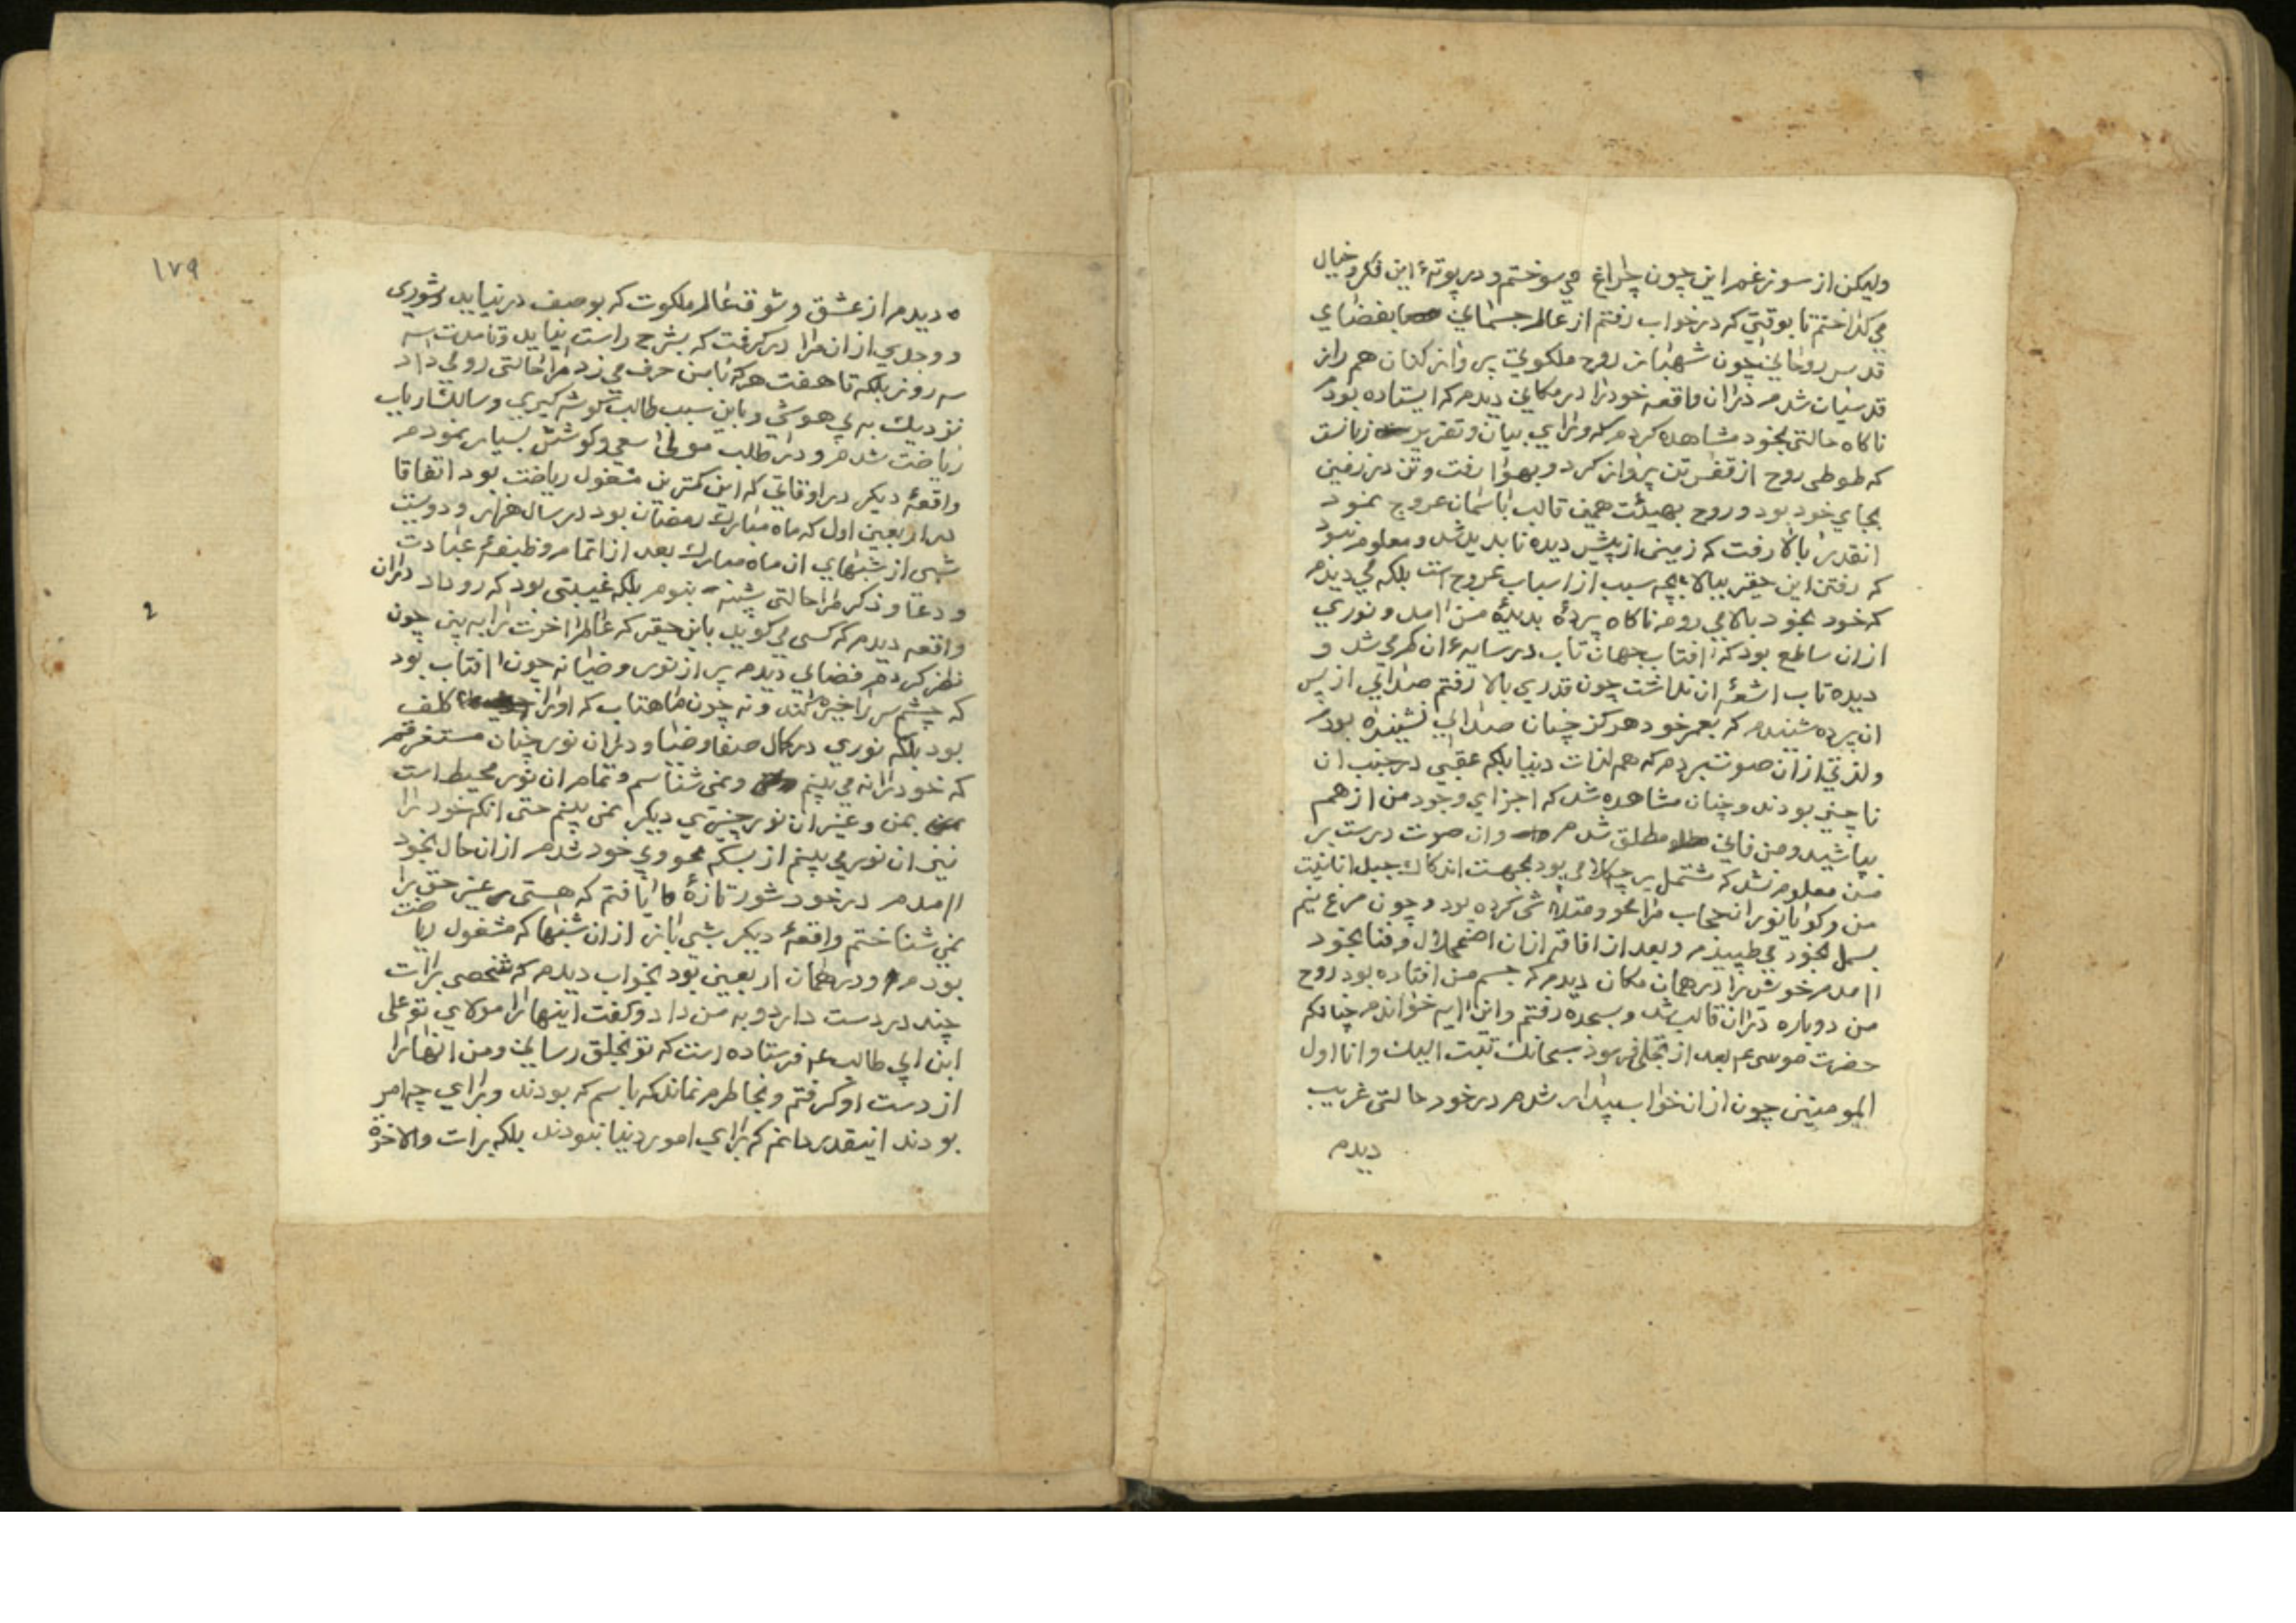 وليكن از سوز غم اين چون چراغ مي سوختم و در پوتهٔ اين فكر و خيال
مي كداختم تا بوقتي كه در خواب رفتم از عالم جسماني بفضاي
قدس روحاني چون شهباز روح ملكوتي پرواز كنان هم راز
قدسيان شدم در ان واقعه خود را در مكاني ديدم كه ايستاده بودم
ناكاه حالتي بخود مشاهده كردم كه وراي بيان و تقرير زبانست
كه طوطي روح از قفس تن پرواز كرد و بهوا رفت و تن در زمين
بجاي خود بود و روح بهيئت همين قالب باسمان عروج نمود
انقدر بالا رفت كه زمين از پيش ديده ناپديد شد و معلوم نبود
كه رفتن اين حقير ببالا بچه سبب از اسباب عروج است بلكه مي ديدم
كه خود بخود بالا مي روم ناكاه پردهٔ بديدهٔ من امد و نوري
از ان ساطع بود كه افتاب جهان تاب در سايه ان كرم مي شد و
ديده تاب اشعهٔ ان نداشت چون قدري بالا رفتم صداي از پس
ان پرده شنيدم كه بعمر خود هركز چنان صداي نشنيده بودم
و لذتي از ان صوت بردم كه هم لذات دنيا بلكه عقبي در جنب ان
ناچيز بودند و چنان مشاهده شد كه اجزاي وجود من از هم
بپاشيد و من فاني مطلق شدم و ان صوت درست بر
من معلوم نشد كه مشتمل بر چه كلامي بود بجهت اندكاك جبل انانيت
من و كويا نور ان حجاب مرا محو و متلاشي كرده بود و چون مرغ نيم
بسمل بخود مي طپيدم و بعد از افاقه از ان اضمحلال و فنا بخود
امدم خويش را در همان مكان ديدم كه جسم من افتاده بود روح
من دوباره در ان قالب شد و بسجده رفتم و اين ايه خواندم چنانكه
حضرت موسي ع بعد از تجلي فرمود سبحانك تبت اليك و انا اول
المومنين چون از ان خواب بيدار شدم در خود حالتي غريب
ديدم
١٧٩
ديدم از عشق و شوق عالم ملكوت كه بوصف در نيايد و شوري
و وجدي از ان مرا در كرفت كه بشرح راست نيايد و تا مدت سه
سه روز بلكه تا هفت هر كه با من حرف مي زد مرا حالتي رو مي داد
نزديك به بي هوشي و باين سبب طالب كوشه كيري و سالك ارباب
رياضت شدم و در طلب مولي سعي و كوشش بسيار نمودم
واقعهٔ ديكر در اوقاتي كه اين كمترين مشغول رياضت بود اتفاقا
در اربعين اول كه ماه مبارك رمضان بود در سال هزار و دويست
شبي از شبهاي ان ماه مبارك بعد از اتمام وظيفهٔ عبادت
و دعا و ذكر مرا حالتي شبيه بنوم بلكه غيبتي بود كه رو داد در ان
واقعه ديدم كه كسي مي كويد باين حقير كه عالم اخرت را به بين چون
نظر كردم فضاي ديدم پر از نور و ضيا نه چون افتاب بود
كه چشم سر را خيره كند و نه چون ماهتاب كه او را كلف
بود بلكه نوري در كمال صفا و ضيا و در ان نور چنان مستغرقم
كه خود را نه مي بينم و نمي شناسم و تمام ان نور محيط است
بمن و غير ان نور چيزي ديكر نمي بينم حتي انكه خود را
نيز ان نور مي بينم از بسكه محو وي خود شدم از ان حال بخود
امدم در خود شور تازهٔ يافتم كه هستي غير حق را
نمي شناختم واقعهٔ ديكر شبي باز از ان شبها كه مشغول رياضت
بودم و در همان اربعين بود بخواب ديدم كه شخصي برات
چند در دست دارد و به من داد و كفت اينها را مولاي تو علي
ابن ابي طالب ع فرستاده است كه تو بخلق رساني و من انها را
از دست او كرفتم و بخاطرم نماند كه باسم كه بودند و براي چه امر
بودند اينقدر دانم كه براي امور دنيا نبودند بلكه برات والاخرة